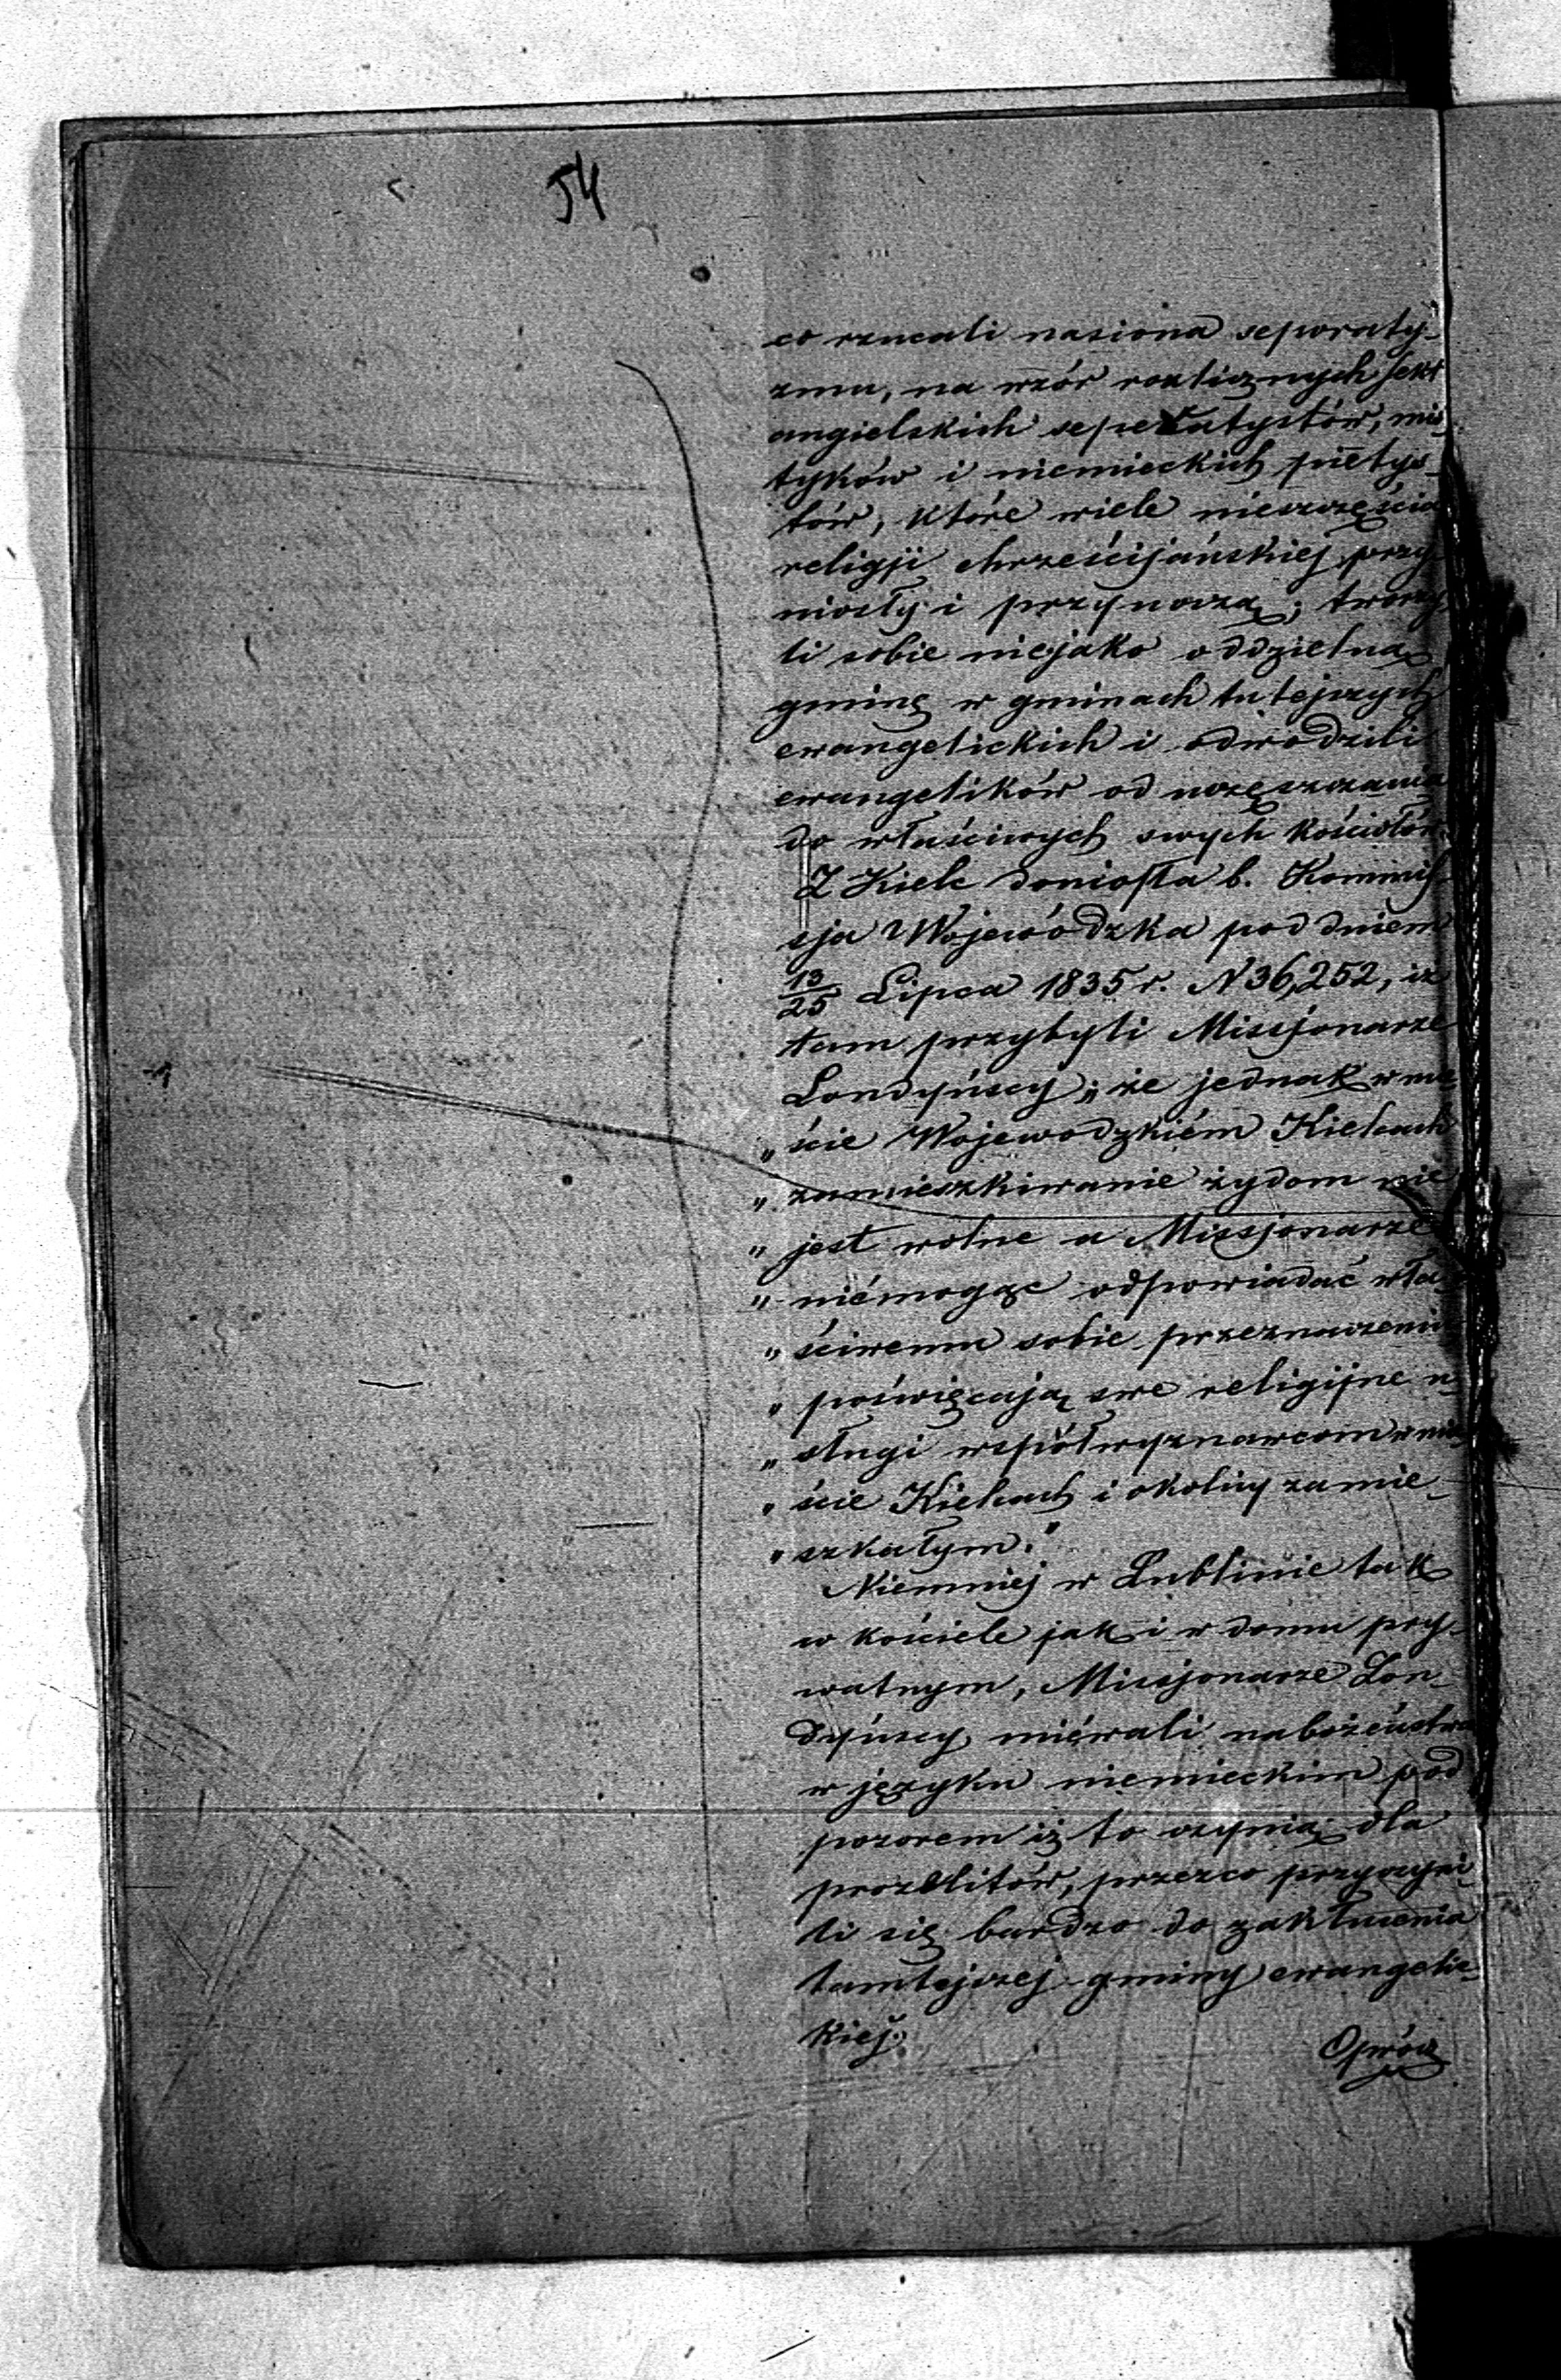 54
co rzucali nasiona separaty-
zmu, na wzór rozlicznych sekt
angielskich seperatystów, mis-
tyków i niemieckich pietys-
tów, które wiele nieszczęścia
religji chrześcijańskiej przy
niosły i przynoszą; tworzy
li sobie niejako oddzielną
gminę w gminach tutejszych
ewangelickich i odwodzili
ewangelików od uczęszczania
do właściwych swych kościołów.
Z Kielc doniosła b. Kommis-
sja Wojewódzka pod dniem
13/25 Lipca 1835 r. N 36,252, iż
tam przybyli Missjonarze
Londyńscy; „że jednak w mie
„ście Wojewodzkiém Kielcach
„zamieszkiwanie żydom nie
„jest wolne a Missjonarze
„niémogąc odpowiadać wła-
„ściwemu sobie przeznaczeniu
„poświęcają swe religijne u-
„sługi współwyznawcom w mie-
„ście Kielcach i okolicy zamie-
„szkałym."
Niemniej w Lublinie tak
w kościele jak i w domu pry-
watnym, Missjonarze Lon-
dyńscy miéwali nabożeństwa
w języku niemieckim pod
pozorem iż to czynią dla
prozelitów, przezco przyczyni-
li się bardzo do zakłucenia
tamtejszej gminy ewangelic-
kiej.
Oprócz